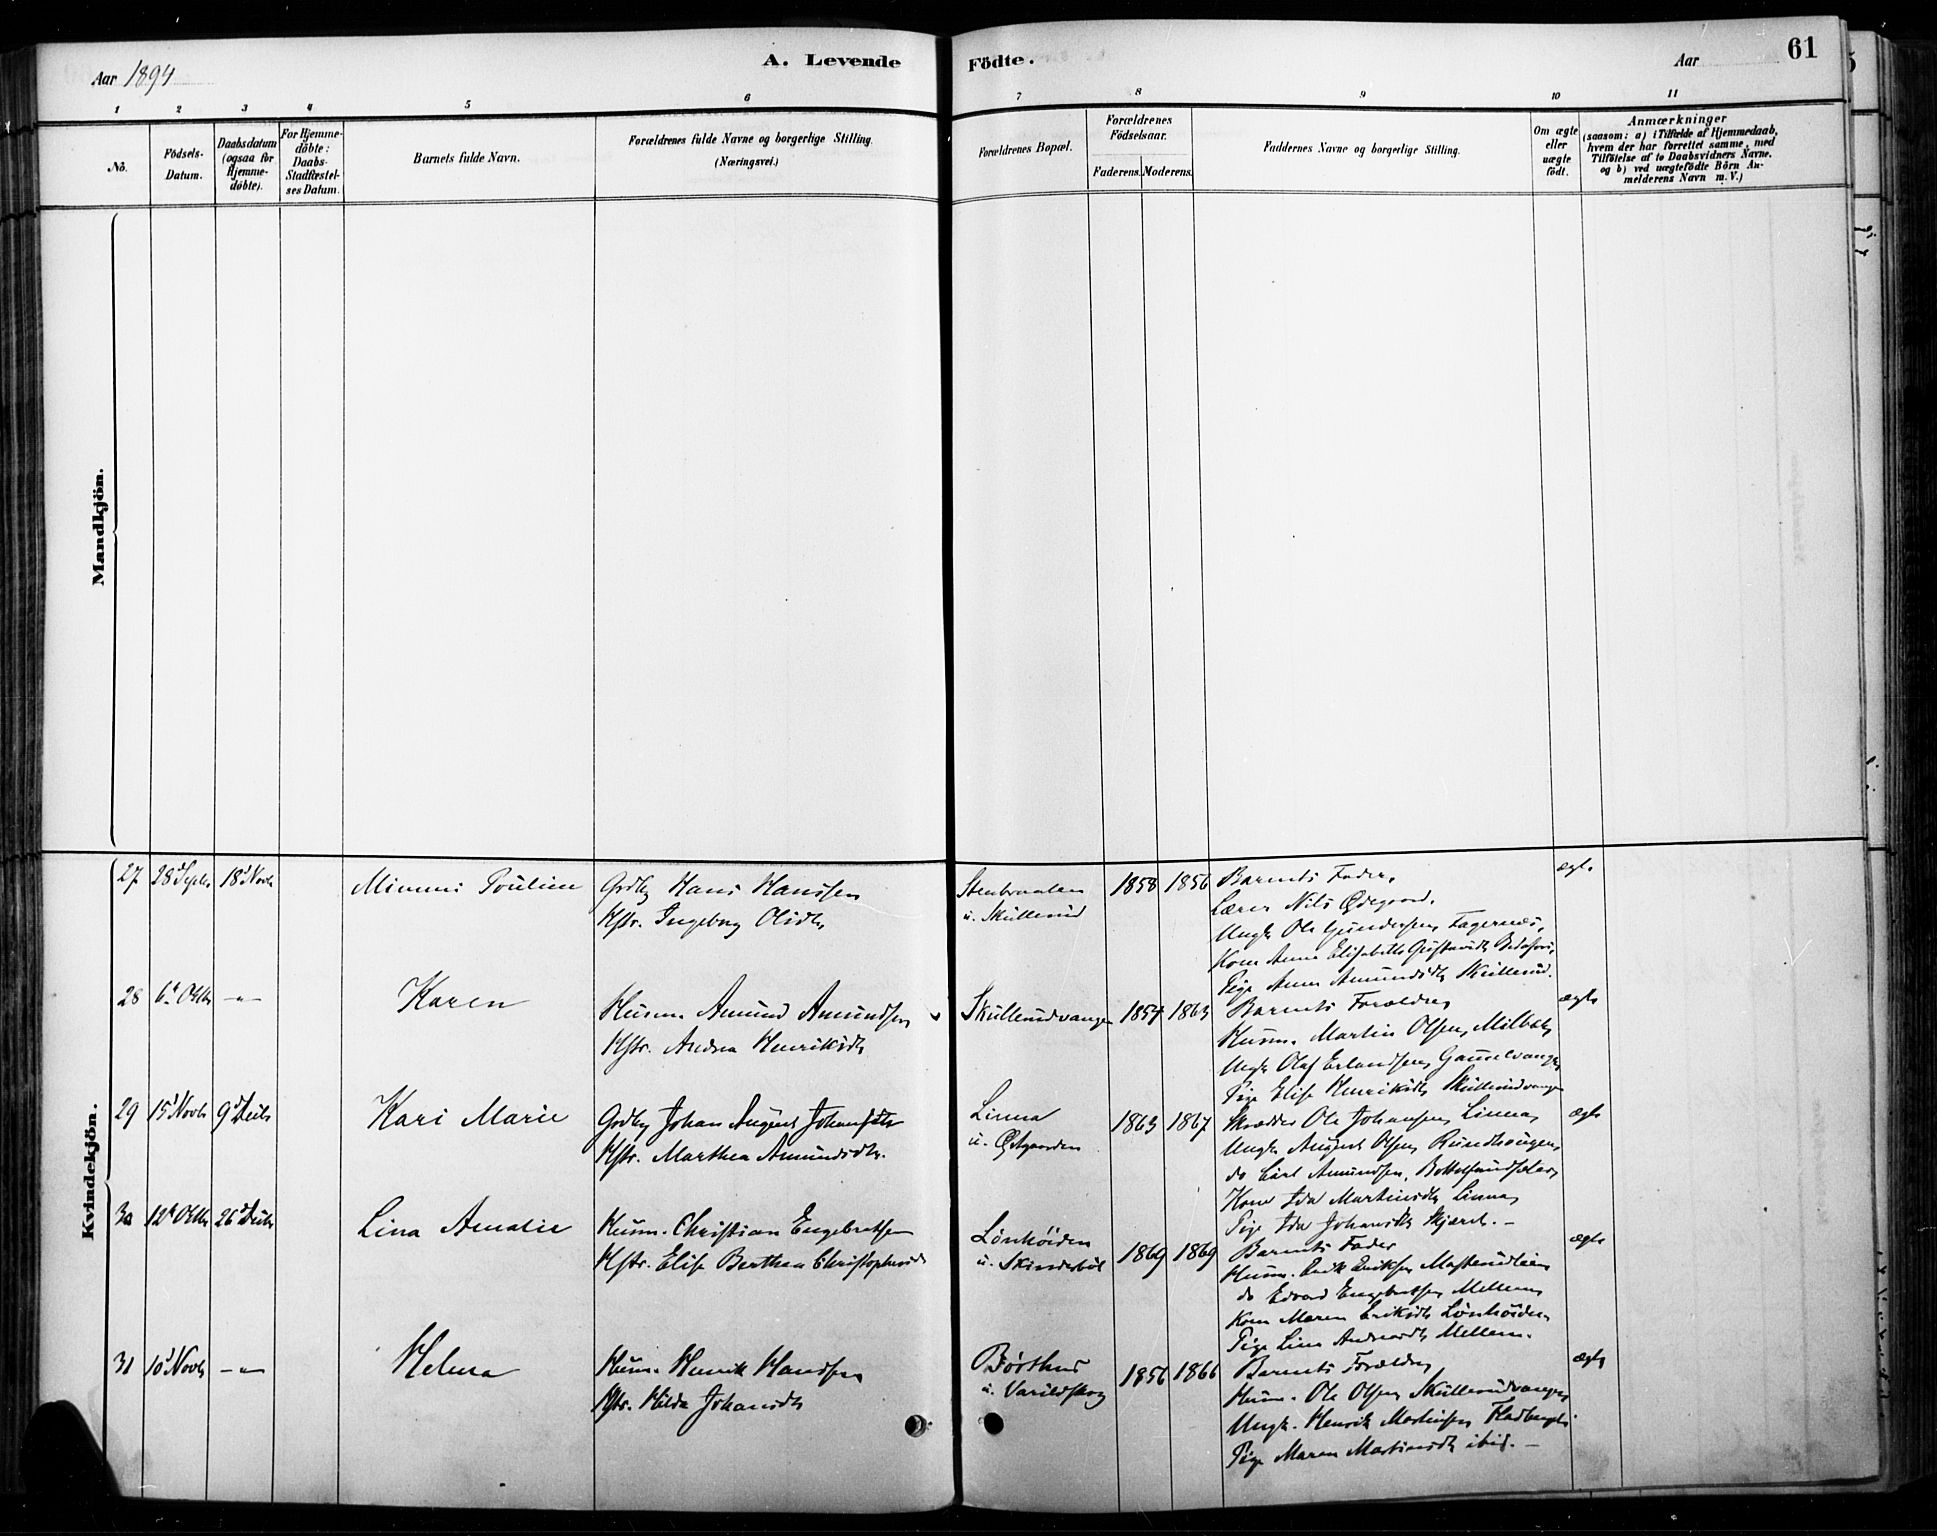 Aar 1894
A. Levende
Födte.
Aar
61
1 2 3 4 5 6 7 8 9 10 11
No.
Födsels-
Datum.
Daabsdatum
(ogsaa for
Hjemme-
döbte).
For Hjemme-
döbte:
Daabs-
Stadfæstel-
ses Datum.
Barnets fulde Navn.
Forældrenes fulde Navne og borgerlige Stilling.
(Næringsvei.)
Forældrenes Bopæl.
Forældrenes
Födselsaar.
Faderens. Moderens.
Faddernes Navne og borgerlige Stilling.
Om ægte
eller
uægte
födt.
Anmærkninger
(saasom: a) i Tilfælde af Hjemmedaab,
hvem der har forrettet samme, med
Tilföielse af to Daabsvidners Navne.
og b) ved uægtefödte Börn An-
melderens Navn m. V.)
Mandkjön.
Kvindekjön.
27 28d Septr 18d Novbr
Poüline
Grdbr Hans Hanssen
Kstr. Ingeborg Olsdtr
Stenbraaten
u. Sküllerud
1858 1856
Barnets Fader,
Lærer Nils Ødegaard,
Ungk Ole Gündersen, Fagernæs,
Kone Anne Elisabeth
Pige Anne Amundsdtr Sküllerüd.
ægte
28 6te Oktbr -"-
Karen
Husm. Amund Amundsen
Kstr. Andrea Henriksdtr
Sküllerudvangen
1854 1863
Barnets Forældre,
Husm. Martin Olsen,
Ungk Olaf Erlandsen,
Pige Elise Henriksdtr, Sküllerudvangen
ægte
29 15d Novbr 9d Decbr
Kari Marie
Grdbr Johan August
Kstr. Marthea Amundsdtr.
Linna
u. Østgaarden
1863 1867
Skrædder Ole Johansen, Linna,
Ungk August Olsen,
do Carl Amundsen,
Kone Ida Martinsdtr Linna,
Pige Ida Johansdtr Skjæret. –
ægte
30 12te Oktbr 26d Decbr
Lina Amalie
Husm. Christian Engebretsen
Kstr. Elise Berthea Christophersdtr
Lönhöiden
u. Skinderbøl
1869 1869
Barnets Fader
Husm. Erik Eriksen
do Edvard Engebretsen, Mellem,
Kone Maren Eriksdtr Lönhöiden,
Pige Lina Andreasdtr Mellem.
ægte
31 10d Novbr -"-
Helma
Husm. Henrik Hansen
Kstr. Hilda Johansdtr
Børthus
u. Varildskog
1856 1866
Barnets Forældre,
Husm. Ole Olsen, Sküllerudvangen,
Ungk. Henrik Martinsen Fladberget.
Pige Maren Martinsdtr ibid. –
ægte